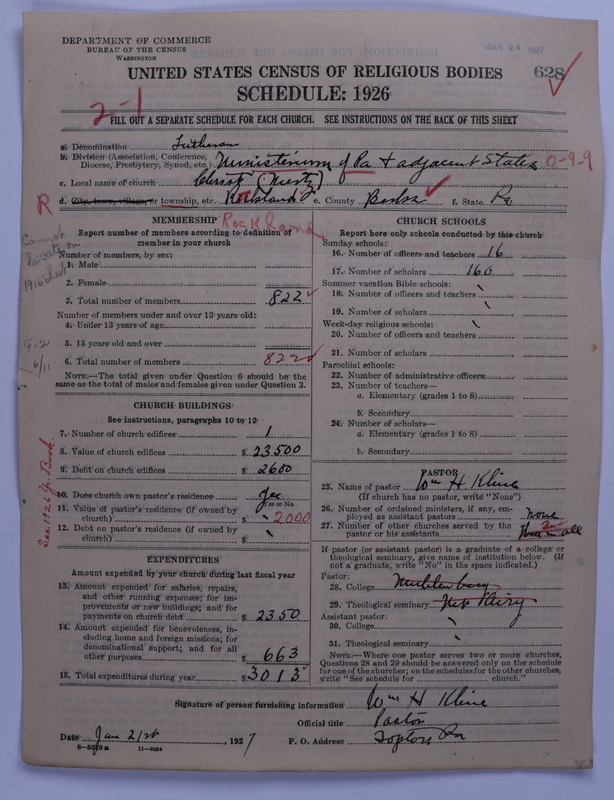 DEPARTMENT OF COMMERCE
BUREAU OF THE CENSUS
WASHINGTON
JAN 24 1927
UNITED STATES CENSUS OF RELIGIOUS BODIES
628
SCHEDULE: 1926
2-1
FILL OUT A SEPARATE SCHEDULE FOR EACH CHURCH. SEE INSTRUCTIONS ON THE BACK OF THIS SHEET
a. Denomination Lutheran
b. Division (Association, Conference, Diocese, Presbytery, Synod, etc.) Ministerium of Pa + adjacent States 0-9-9
c. Local name of church Christ (Mertz)
R d. City, town, village, or township, etc. Rockland e. County Berks f. State Pa
Rockland
Cannot locate on 1916 sched
MEMBERSHIP
Report number of members according to definition of
member in your church
Number of members, by sex:
1. Male
2. Female
3. Total number of members 822
Number of members under and over 13 years old:
4. Under 13 years of age
5. 13 years old and over
6. Total number of members 822
6/11
NOTE.—The total given under Question 6 should be
the same as the total of males and females given under Question 3.
CHURCH BUILDINGS
See instructions, paragraphs 10 to 12
7. Number of church edifices 1
8. Value of church edifices $ 23500
9. Debt on church edifices $ 2600
See 1926 Yr. Book
10. Does church own pastor's residence Yes
Yes or No
11. Value of pastor's residence (if owned by
church) $ 2000
12. Debt on pastor's residence (if owned by
church) $ \
EXPENDITURES
Amount expended by your church during last fiscal year
13. Amount expended for salaries, repairs,
and other running expenses; for im-
provements or new buildings; and for
payments on church debt $ 2350
14. Amount expended for benevolences, in-
cluding home and foreign missions; for
denominational support; and for all
other purposes $ 663
15. Total expenditures during year $ 3013
CHURCH SCHOOLS
Report here only schools conducted by this church
Sunday schools:
16. Number of officers and teachers 16
17. Number of scholars 160
Summer vacation Bible schools:
18. Number of officers and teachers \
19. Number of scholars \
Week-day religious schools:
20. Number of officers and teachers \
21. Number of scholars
Parochial schools:
22. Number of administrative officers
23. Number of teachers—
a. Elementary (grades 1 to 8)
b. Secondary
24. Number of scholars—
a. Elementary (grades 1 to 8)
b. Secondary
PASTOR
25. Name of pastor Wm H Kline
(If church has no pastor, write "None")
26. Number of ordained ministers, if any, em-
ployed as assistant pastors none
27. Number of other churches served by the
pastor or his assistants Three in all
If pastor (or assistant pastor) is a graduate of a college or
theological seminary, give name of institution below. (If
not a graduate, write "No" in the space indicated.)
Pastor:
28. College Muhlenberg
29. Theological seminary Mt Airy
Assistant pastor:
30. College \
31. Theological seminary \
NOTE.—Where one pastor serves two or more churches,
Questions 28 and 29 should be answered only on the schedule
for one of the churches; on the schedules for the other churches,
write "See schedule for church."
Signature of person furnishing information Wm H Kline
Official title Pastor
Date Jan 21st, 1927 P. O. Address Topton Pa
6-5528a 11-9054